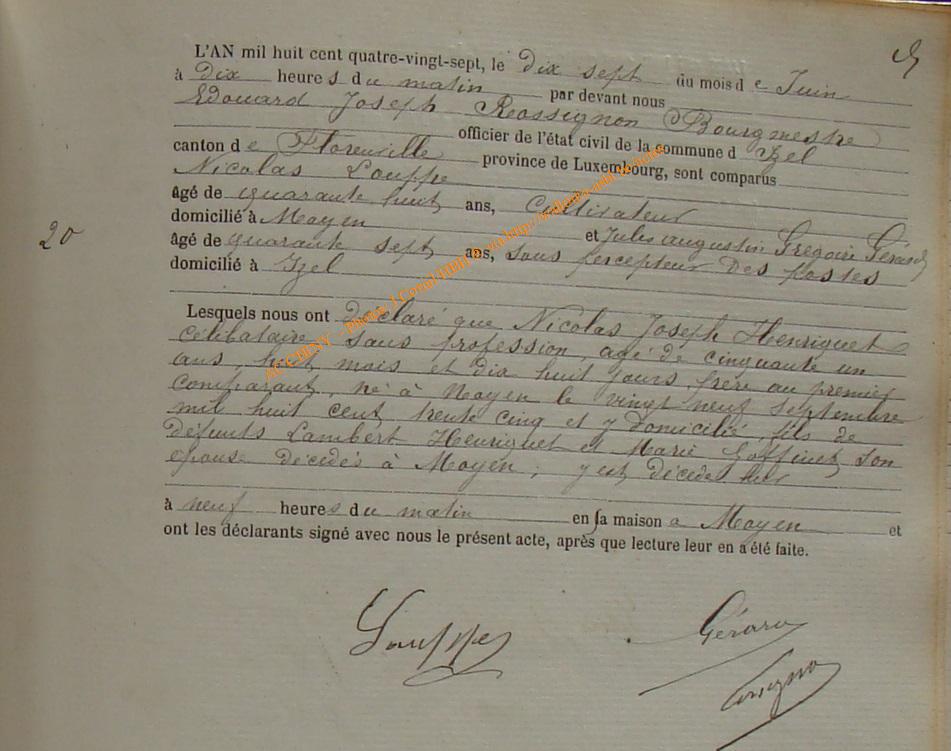 L'AN mil huit cent quatre-vingt-sept, le dix sept du mois de Juin
à dix heures du matin par devant nous
Edouard Joseph Rossignon Bourgmestre
officier de l'état civil de la commune d'Izel
canton de Florenville province de Luxembourg, sont comparus
Nicolas Louppe
âgé de quarante huit ans, Cultivateur
domicilié à Moyen et Jules augustin Grégoire Gérard
âgé de quarante sept ans, Sous percepteur des postes
domicilié à Izel
20
Lesquels nous ont déclaré que Nicolas Joseph Henriquet
célibataire sans profession, agé de cinquante un
ans, huit mois et dix huit jours, frère au premier
comparant, né à Moyen le vingt neuf Septembre
mil huit cent trente cinq et y domicilié, fils de
défunts Lambert Henriquet et Marie Goffinet, son
épouse décédés à Moyen; y est décédé hier
à neuf heures du matin en sa maison à Moyen et
ont les déclarants signé avec nous le présent acte, après que lecture leur en a été faite.
Louppe
Gérard